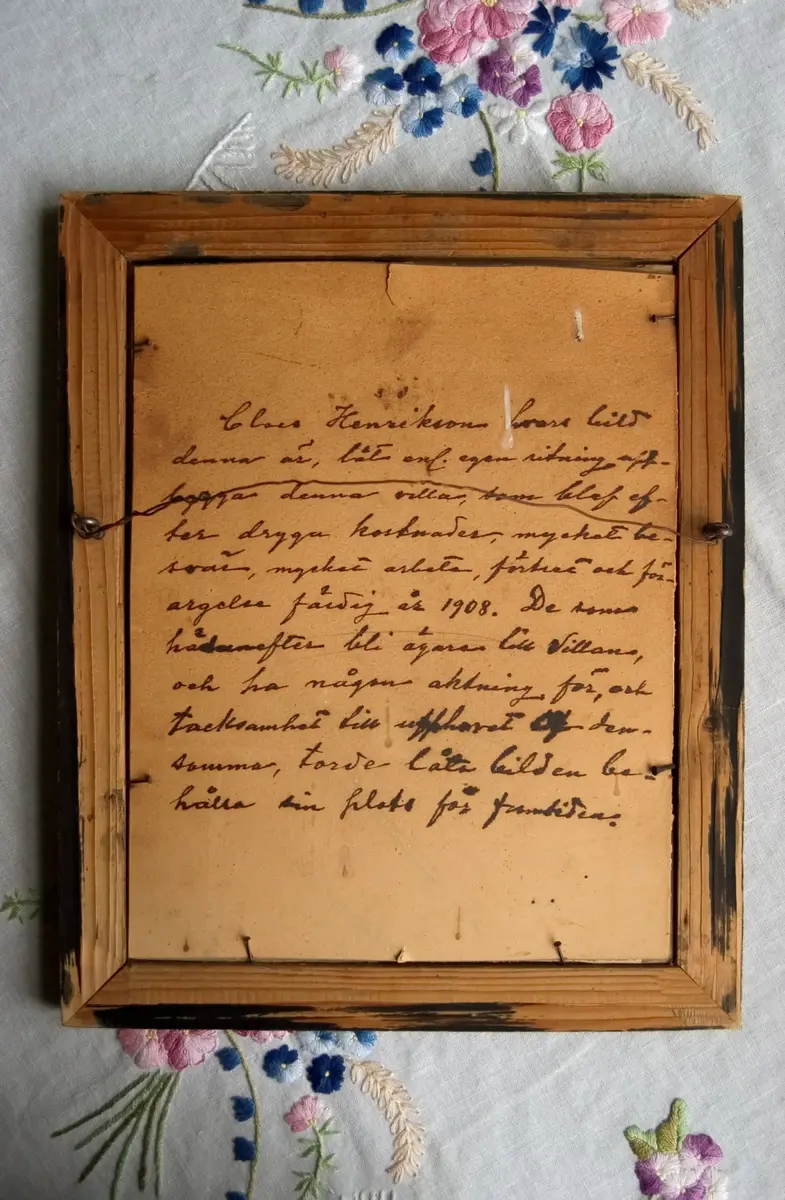 Claes Henrikson hvars bild
denna är, lät enl. egen ritning upp-
bygga denna villa, som blef ef-
ter dryga kostnader, mycket be-
svär, mycket arbete, förtret och för-
argelse färdig år 1908. De som
hädanefter bli ägare till Villan,
och ha någon aktning för, och
tacksamhet till upphovet af den-
samma, torde låta bilden be-
hålla sin plats för framtiden.